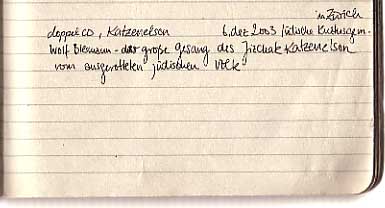 in Zürich
doppel CD, Katzenelson 6. dez 2003 jüdische Kultusgem.
Wolf Biermann - der große Gesang des Jizchak Katzenelson
vom ausgerotteten jüdischen Volk